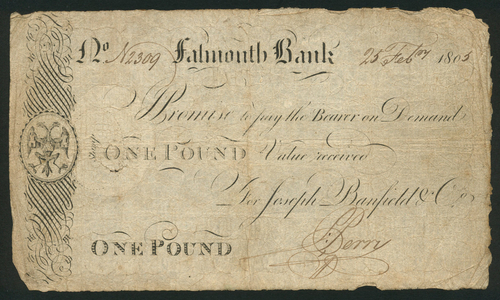 No. N2309 Falmouth Bank 25 Feby 1805
I Promise to pay the Bearer on Demand
ONE POUND Value received
For Joseph Banfield & Co.
ONE POUND